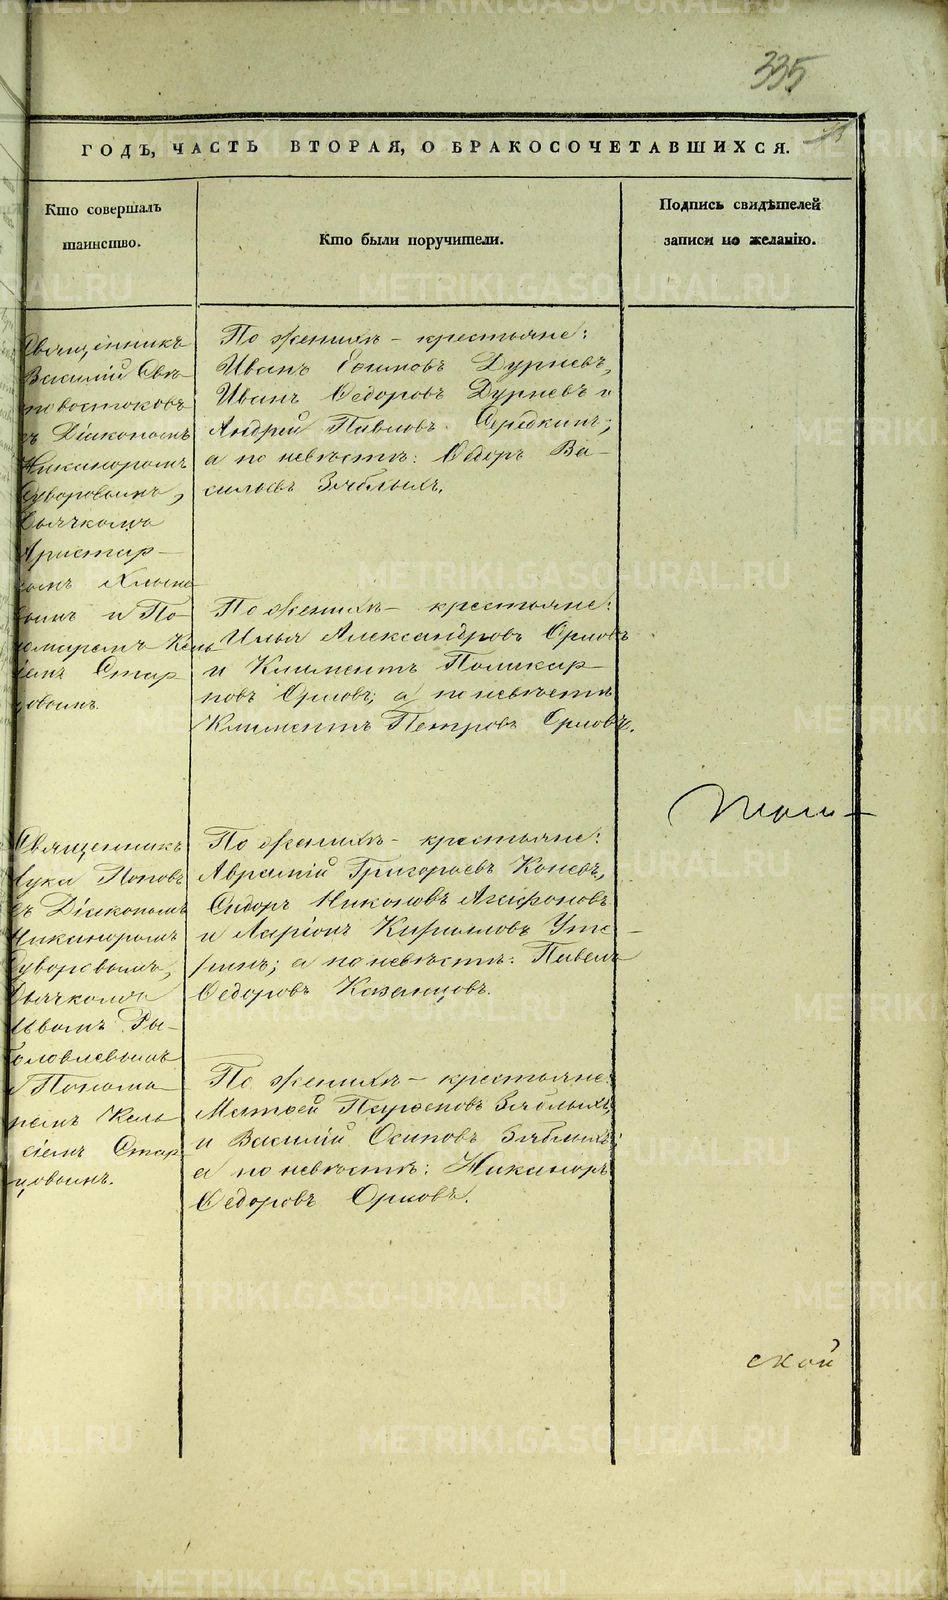 335
ГОДЪ, ЧАСТЬ ВТОРАЯ, О БРАКОСОЧЕТАВШИХСЯ.
Кто совершалъ
таинство.
Кто были поручители.
Подпись свидѣтелей
записи по желанію.
Священникъ
Василій Свѣ-
товостоковъ
съ Діакономъ
Никаноромъ
Суворовымъ,
Дьячкомъ
Аристар-
хомъ
и По-
номаремъ Кель
сіемъ Стар
цовымъ.
По женихѣ – крестьяне:
Иванъ Дурневъ,
Иванъ Ѳедоровъ Дурневъ и
Андрей Павловъ Середкинъ;
а по невѣстѣ: Ѳедоръ Ва-
сильевъ Зяблыхъ.
По женихѣ – крестьяне:
Илья Александровъ Орловъ
и Климентъ Поликар-
повъ Орловъ; а по невѣстѣ
Климентъ Петровъ Орловъ.
Священникъ
Лука Поповъ
съ Діакономъ
Никаноромъ
Суворовымъ,
Дьячкомъ
Львомъ Ры-
боловлевымъ
и Понома-
ремъ Кель
сіемъ Стар
цовымъ.
По женихѣ – крестьяне:
Авраамій Григорьевъ Коневъ,
Сидоръ Никоновъ Агафоновъ
и Ларіонъ Кирилловъ Уте-
; а по невѣстѣ: Павелъ
Ѳедоровъ Казанцовъ.
По женихѣ – крестьяне:
Матвей Зяблыхъ,
и Василій Осиповъ Зяблыхъ;
а по невѣстѣ: Никаноръ
Ѳедоровъ Орловъ.
ской
METRIKI.GASO-URAL.RU